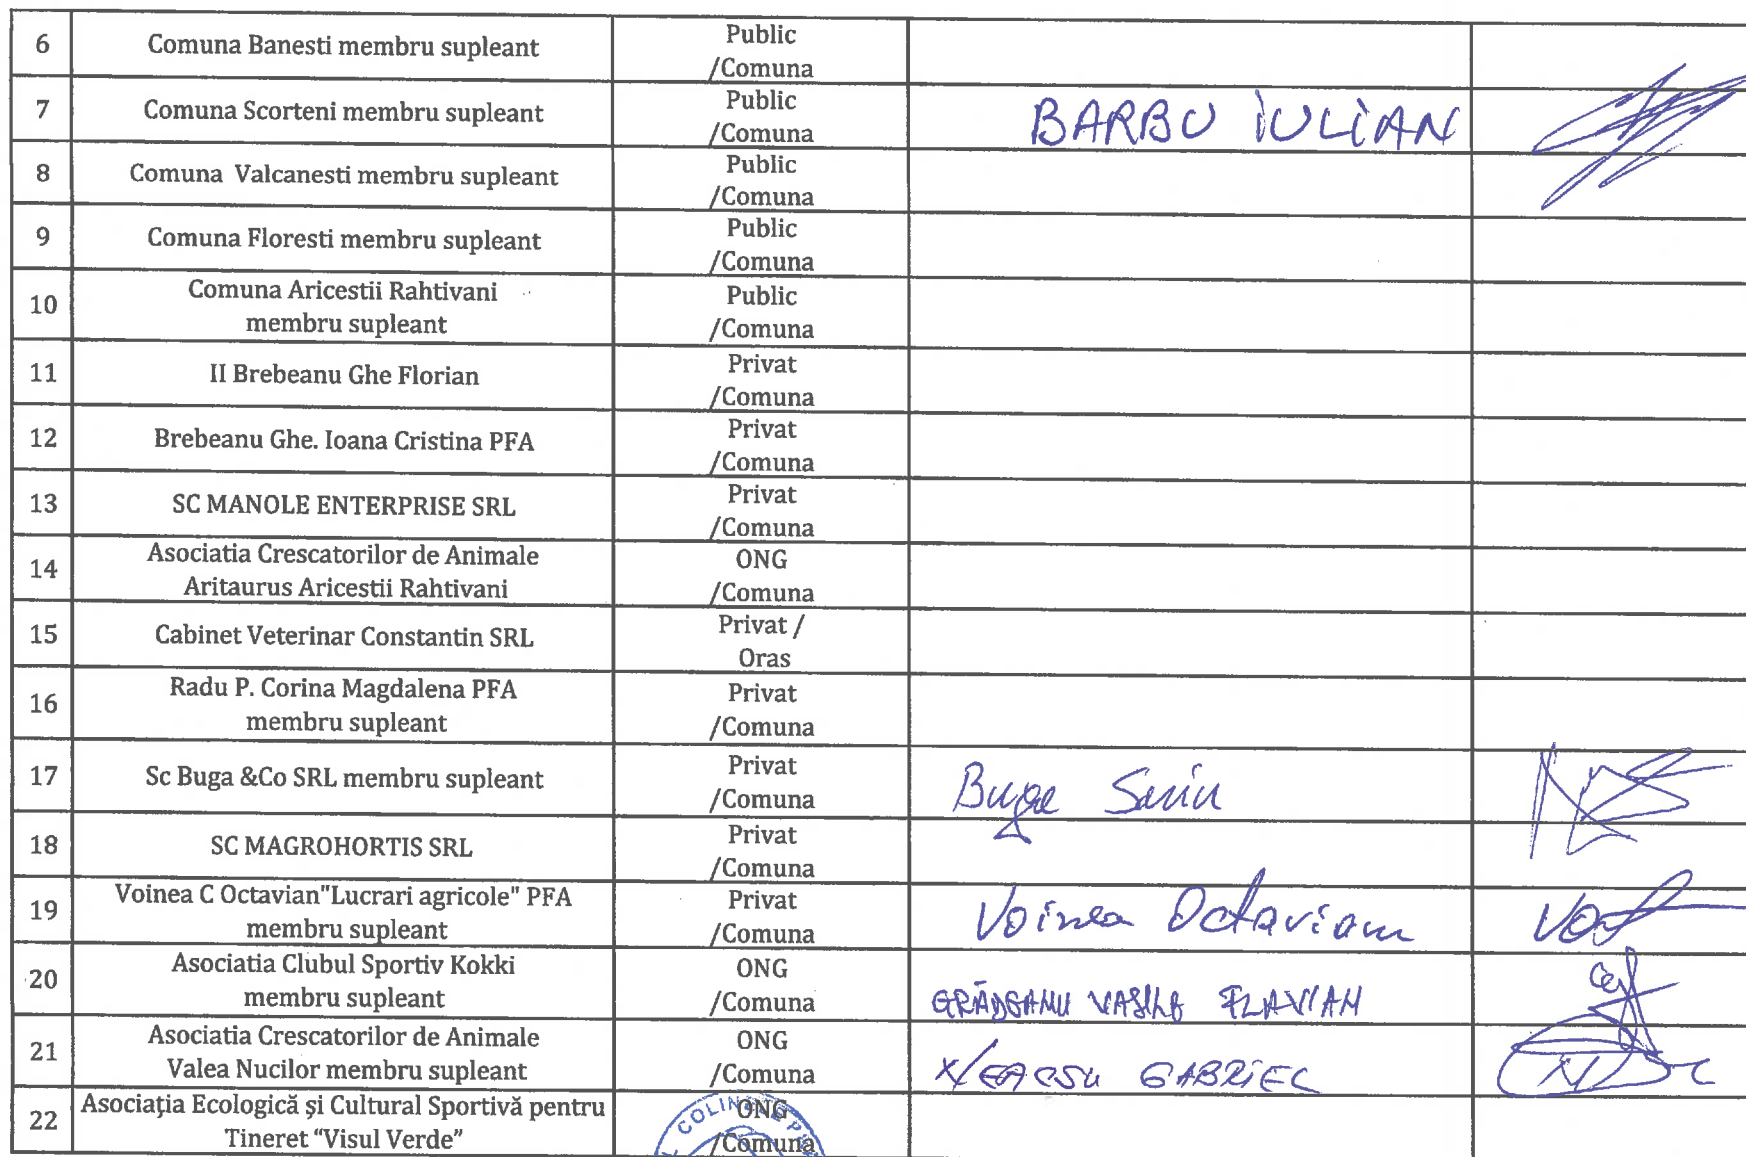 6 Comuna Banesti membru supleant Public
/Comuna
7 Comuna Scorteni membru supleant Public
/Comuna BARBU IULIAN
8 Comuna Valcanesti membru supleant Public
/Comuna
9 Comuna Floresti membru supleant Public
/Comuna
10 Comuna Aricestii Rahtivani Public
membru supleant /Comuna
11 II Brebeanu Ghe Florian Privat
/Comuna
12 Brebeanu Ghe. Ioana Cristina PFA Privat
/Comuna
13 SC MANOLE ENTERPRISE SRL Privat
/Comuna
14 Asociatia Crescatorilor de Animale ONG
Aritaurus Aricestii Rahtivani /Comuna
15 Cabinet Veterinar Constantin SRL Privat /
Oras
16 Radu P. Corina Magdalena PFA Privat
membru supleant /Comuna
17 Sc Buga &Co SRL membru supleant Privat
/Comuna Buga
18 SC MAGROHORTIS SRL Privat
/Comuna
19 Voinea C Octavian"Lucrari agricole" PFA Privat
membru supleant /Comuna Voinea Octavian
20 Asociatia Clubul Sportiv Kokki ONG
membru supleant /Comuna GRĂDEANU VASILE FLAVIAN
21 Asociatia Crescatorilor de Animale ONG
Valea Nucilor membru supleant /Comuna GABRIEL
22 Asociaţia Ecologică şi Cultural Sportivă pentru ONG
Tineret “Visul Verde” /Comuna
COLINELE